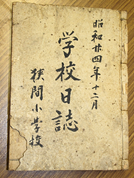 昭和廿四年十二月
学校日誌
狭間小学校